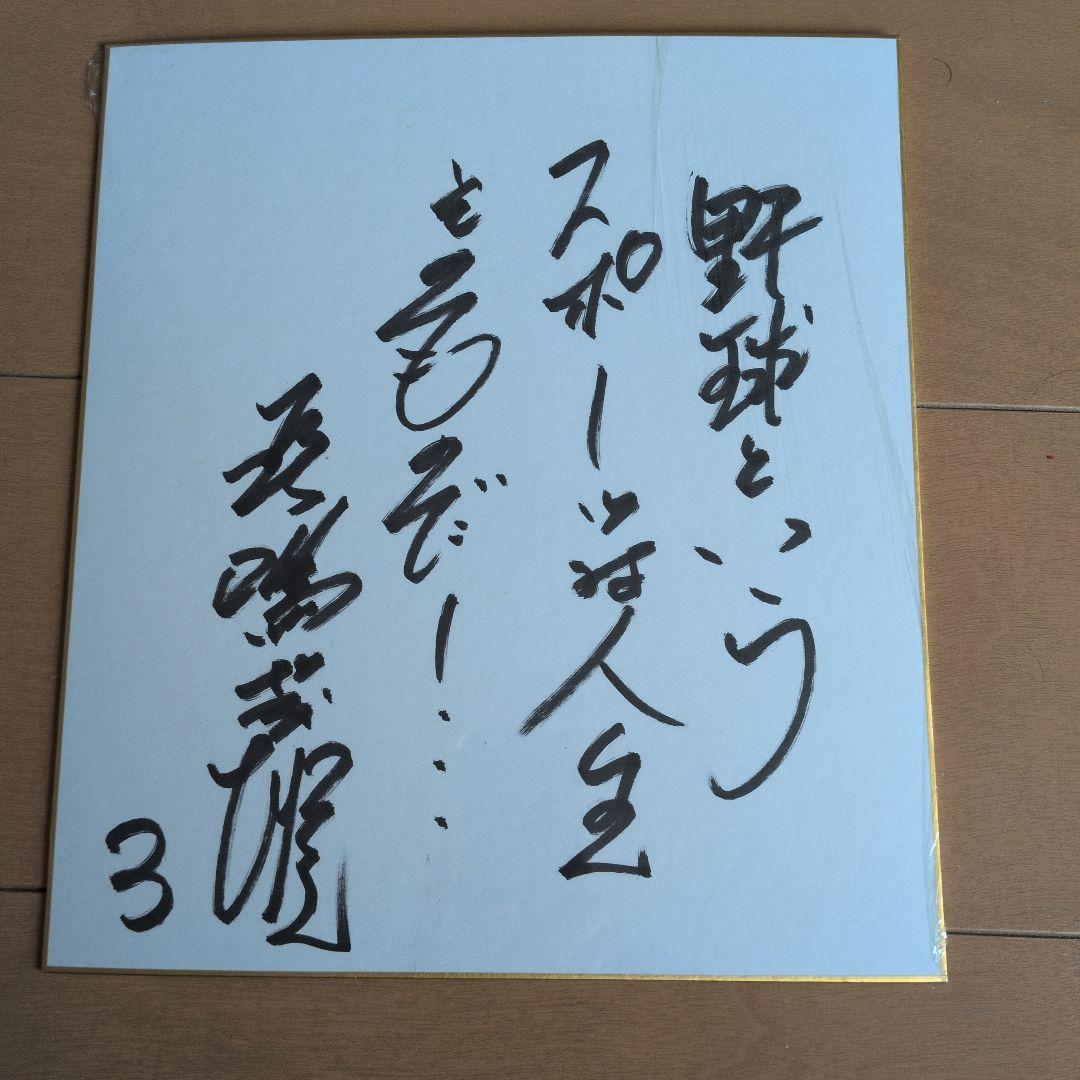 野球という
スポーツは人生
そのものだ・・・
長嶋茂雄
3